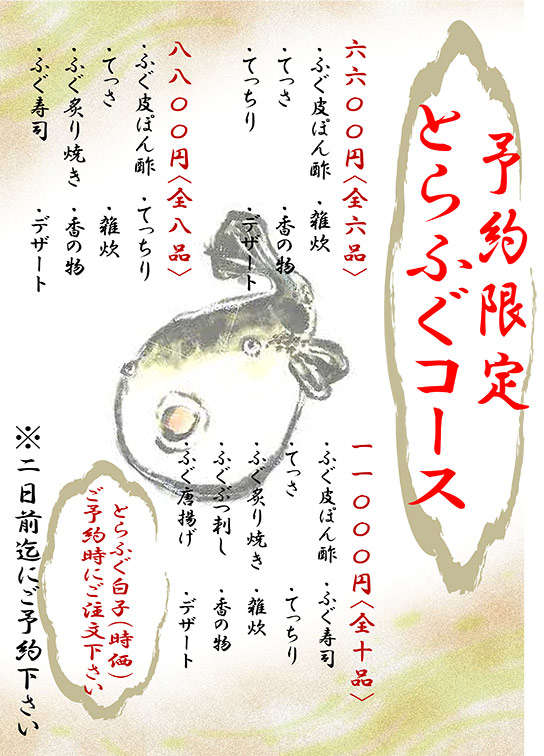 予約限定
とらふぐコース
六六〇〇円〈全六品〉
・ふぐ皮ぽん酢 ・雑炊
・てっさ ・香の物
・てっちり ・デザート
八八〇〇円〈全八品〉
・ふぐ皮ぽん酢 ・てっちり
・てっさ ・雑炊
・ふぐ炙り焼き ・香の物
・ふぐ寿司 ・デザート
一一〇〇〇円〈全十品〉
・ふぐ皮ぽん酢 ・ふぐ寿司
・てっさ ・てっちり
・ふぐ炙り焼き ・雑炊
・ふぐぶつ刺し ・香の物
・ふぐ唐揚げ ・デザート
とらふぐ白子(時価)
ご予約時にご注文下さい
※二日前迄にご予約下さい